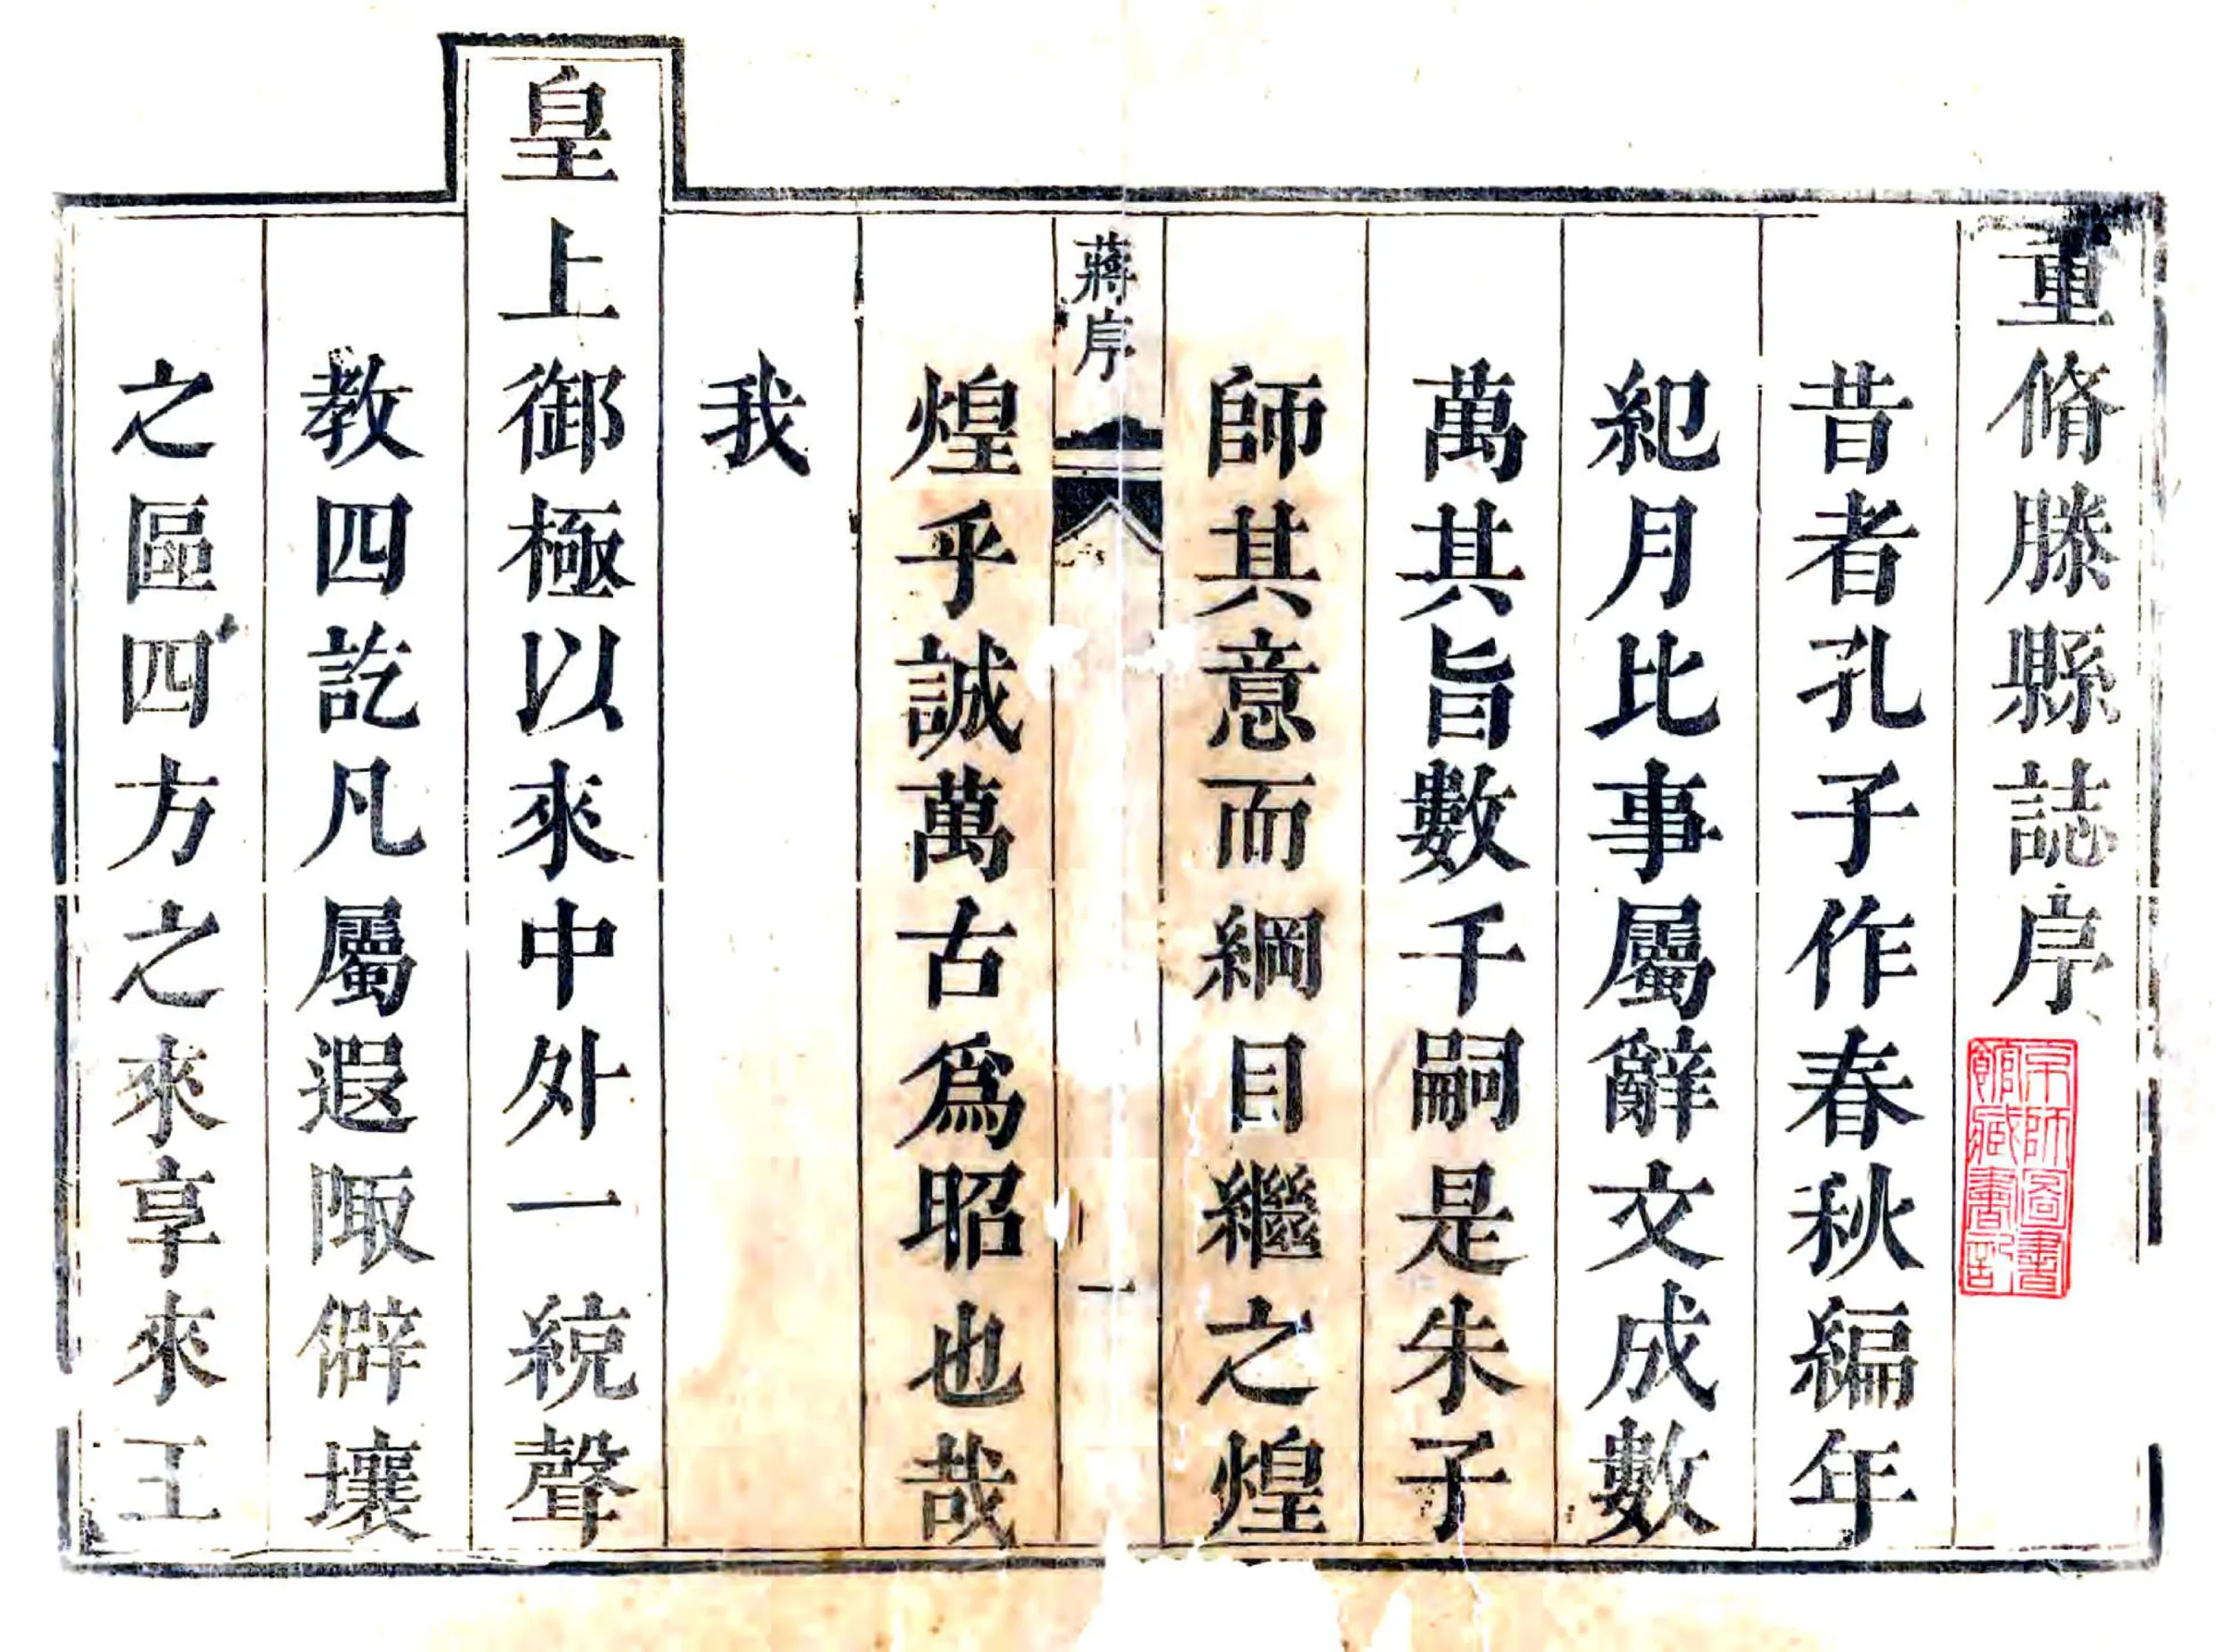 重脩滕縣誌序
京師圖書
館藏書記
昔者孔子作春秋編年
紀月比事屬辭文成數
萬其旨數千嗣是朱子
師其意而綱目繼之煌
蔣序
一
煌乎誠萬古爲昭也哉
我
皇上御極以來中外一統聲
教四訖凡屬遐陬僻壤
之區四方之來享來王